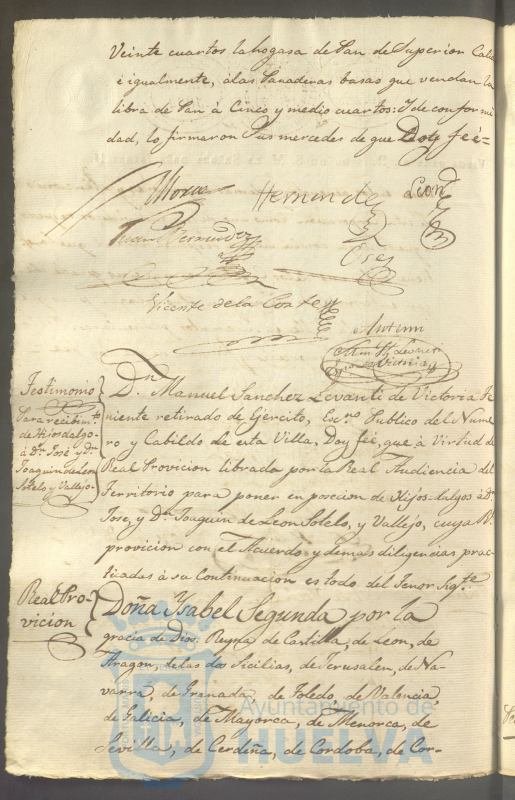 Veinte cuartos la hogasa de Pan de Superior Cali
é igualmente, álas Panaderas basas que vendan la
libra de Pan á Cinco y medio cuartos: Y de conformi
dad, lo firmaron Sus mercedes de que Doy fée=
Hernandez
Leon
Manuel Fernandez
Vicente de la Corte
Antemi
Testimonio
para recibim.to
de Hijosdalgo
á Dn. José, y Dn.
Joaquin de Leon
Sotelo y Vallejo.
Dn. Manuel Sanchez Levanti de Victoria Te
niente retirado de Egército, Esc.no Publico del Nume
ro y Cabildo de esta Villa, Doy fée, que á Virtud de
Real Provicion librada por la Real Audiencia del
Territorio para poner en posecion de Hijos-dalgos á Dn.
Jose, y Dn. Joaquin de Leon Sotelo, y Vallejo, cuya Rl.
provicion con el Acuerdo y demas diligencias prac-
ticadas á su Continuacion es todo del Tenor Sig.te
Real Pro-
vicion
Doña Ysabel Segunda por la
gracia de Dios: Reyna de Castilla, de Leon, de
Aragon, de las dos Sicilias, de Jerusalen, de Na-
varra, de Granada, de Toledo, de Valencia,
de Galicia, de Mayorca, de Menorca, de
Sevilla, de Cerdeña, de Cordoba, de Cor-
Ayuntamiento de
HUELVA